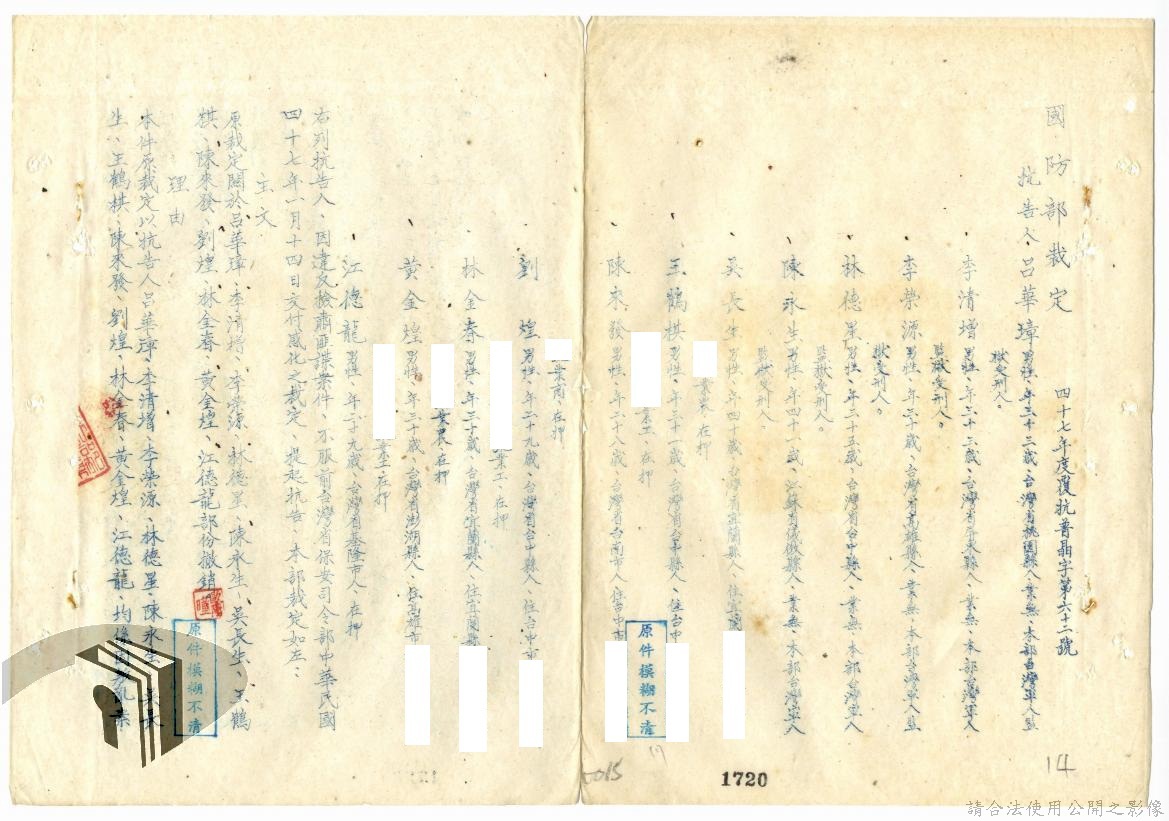 國防部裁定
四十七年度覆抗普晶字第六十二號
抗告人呂華璋男性、年三十三歲、台灣省桃園縣人、業無、本部台灣軍人監
獄受刑人。
李清增男性、年三十三歲、台灣省屏東縣人、業無、本部台灣軍人
監獄受刑人。
李榮源男性、年三十歲、台灣省高雄縣人、業無、本部台灣軍人監
獄受刑人。
林德星男性、年三十五歲、台灣省台中縣人、業無、本部台灣軍人
監獄受刑人。
陳永生男性、年四十歲、江蘇省儀徵縣人、業無、本部台灣軍人
監獄受刑人。
吳長生男性、年四十歲、台灣省宜蘭縣人、住宜蘭
業農、在押
王鶴棋男性、年三十一歲、台灣省台中縣人、住台中
業工、在押
陳來發男性、年二十八歲、台灣省台南市人、住台中市
業商、在押
劉煌男性、年二十九歲、台灣省台中縣人、住台中市
業工、在押
林金春男性、年三十歲、台灣省宜蘭縣人、住宜蘭縣
業農、在押
黃金煌男性、年三十歲、台灣省澎湖縣人、住高雄市
業工、在押
江德龍男性、年二十九歲、台灣省基隆市人、在押
右列抗告人、因違反檢肅匪諜案件、不服前台灣省保安司令部中華民國
四十七年一月十四日交付感化之裁定、提起抗告、本部裁定如左：
主文
原裁定關於呂華璋、李清增、李榮源、林德星、陳永生、吳長生、王鶴
棋、陳來發、劉煌、林金春、黃金煌、江德龍部份撤銷
理由
本件原裁定以抗告人呂華璋、李清增、李榮源、林德星、陳永生、吳長
生、王鶴棋、陳來發、劉煌、林金春、黃金煌、江德龍、均係
原件模糊不清
原件模糊不清
1720
14
請合法使用公開之影像